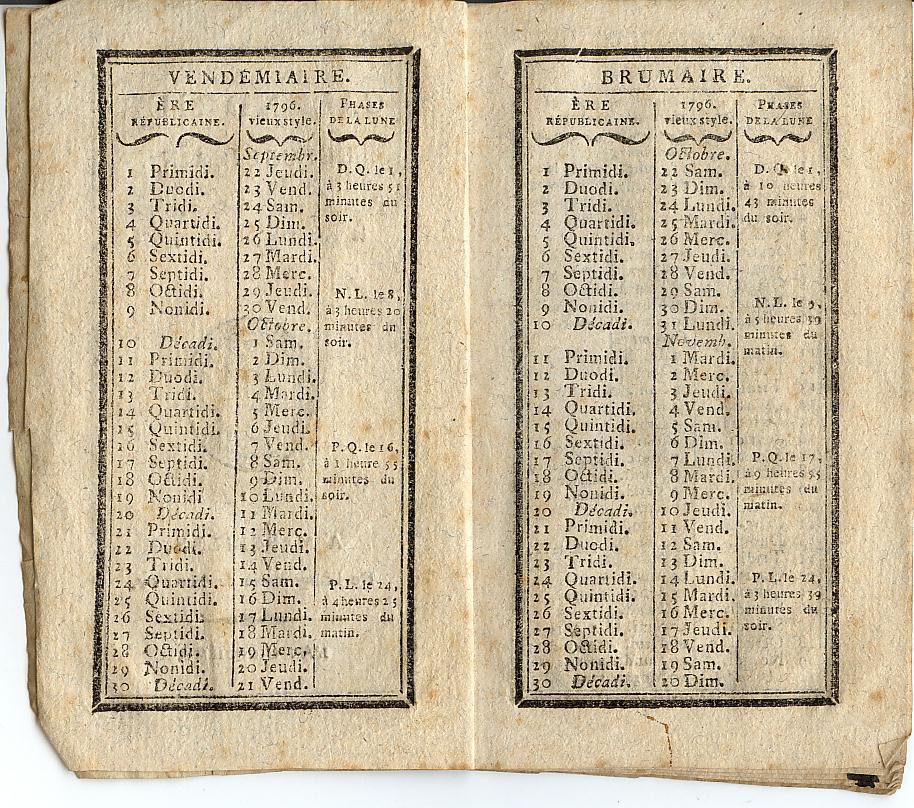 VENDÉMIAIRE.
ÈRE RÉPUBLICAINE.
1796. vieux style.
PHASES DE LA LUNE
Septembr.
1 Primidi. 22 Jeudi.
2 Duodi. 23 Vend.
3 Tridi. 24 Sam.
4 Quartidi. 25 Dim.
5 Quintidi. 26 Lundi.
6 Sextidi. 27 Mardi.
7 Septidi. 28 Merc.
8 Octidi. 29 Jeudi.
9 Nonidi. 30 Vend.
Octobre.
10 Décadi. 1 Sam.
11 Primidi. 2 Dim.
12 Duodi. 3 Lundi.
13 Tridi. 4 Mardi.
14 Quartidi. 5 Merc.
15 Quintidi. 6 Jeudi.
16 Sextidi. 7 Vend.
17 Septidi. 8 Sam.
18 Octidi. 9 Dim.
19 Nonidi 10 Lundi.
20 Décadi. 11 Mardi.
21 Primidi. 12 Merc.
22 Duodi. 13 Jeudi.
23 Tridi. 14 Vend.
24 Quartidi. 15 Sam.
25 Quintidi. 16 Dim.
26 Sextidi. 17 Lundi.
27 Septidi. 18 Mardi.
28 Octidi. 19 Merc.
29 Nonidi. 20 Jeudi.
30 Décadi. 21 Vend.
D. Q. le 1,
à 3 heures 51
minutes du
soir.
N. L. le 8,
à 3 heures 20
minutes du
soir.
P. Q. le 16,
à 1 heure 55
minutes du
soir.
P. L. le 24,
à 4 heures 25
minutes du
matin.
BRUMAIRE.
ÈRE RÉPUBLICAINE.
1796. vieux style.
PHASES DE LA LUNE
Octobre.
1 Primidi. 22 Sam.
2 Duodi. 23 Dim.
3 Tridi. 24 Lundi.
4 Quartidi. 25 Mardi.
5 Quintidi. 26 Merc.
6 Sextidi. 27 Jeudi.
7 Septidi. 28 Vend.
8 Octidi. 29 Sam.
9 Nonidi. 30 Dim.
10 Décadi. 31 Lundi.
Novemb.
11 Primidi. 1 Mardi.
12 Duodi. 2 Merc.
13 Tridi. 3 Jeudi.
14 Quartidi. 4 Vend.
15 Quintidi. 5 Sam.
16 Sextidi. 6 Dim.
17 Septidi. 7 Lundi.
18 Octidi. 8 Mardi.
19 Nonidi. 9 Merc.
20 Décadi. 10 Jeudi.
21 Primidi. 11 Vend.
22 Duodi. 12 Sam.
23 Tridi. 13 Dim.
24 Quartidi. 14 Lundi.
25 Quintidi. 15 Mardi.
26 Sextidi. 16 Merc.
27 Septidi. 17 Jeudi.
28 Octidi. 18 Vend.
29 Nonidi. 19 Sam.
30 Décadi. 20 Dim.
D. Q. le 1,
à 10 heures
43 minutes
du soir.
N. L. le 9,
à 5 heures 39
minutes du
matin.
P. Q. le 17,
à 9 heures 55
minutes du
matin.
P. L. le 24,
à 3 heures 39
minutes du
soir.